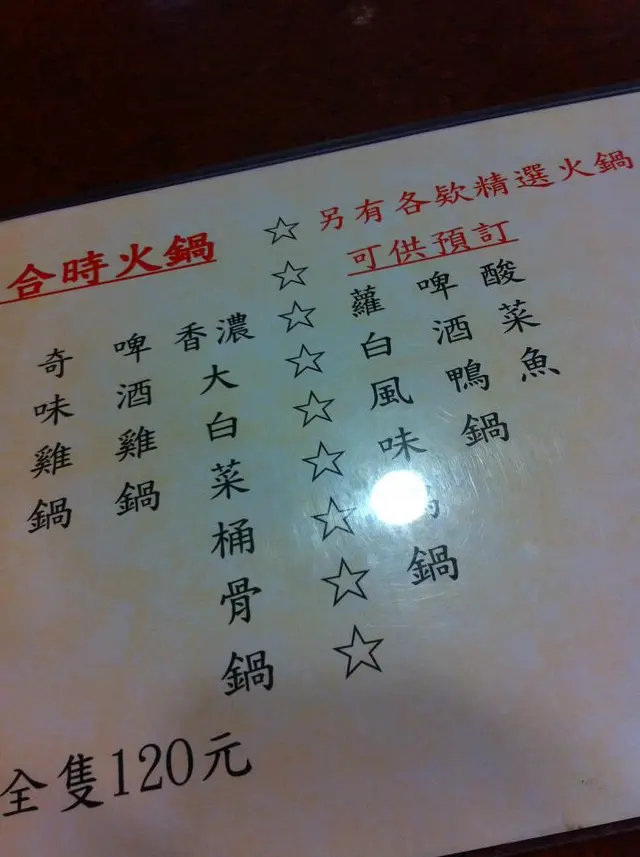 合時火鍋
奇味雞鍋
啤酒雞鍋
香濃大白菜桶骨鍋
全隻120元
另有各欵精選火鍋
可供預訂
蘿白風味鍋
啤酒鴨鍋
酸菜魚